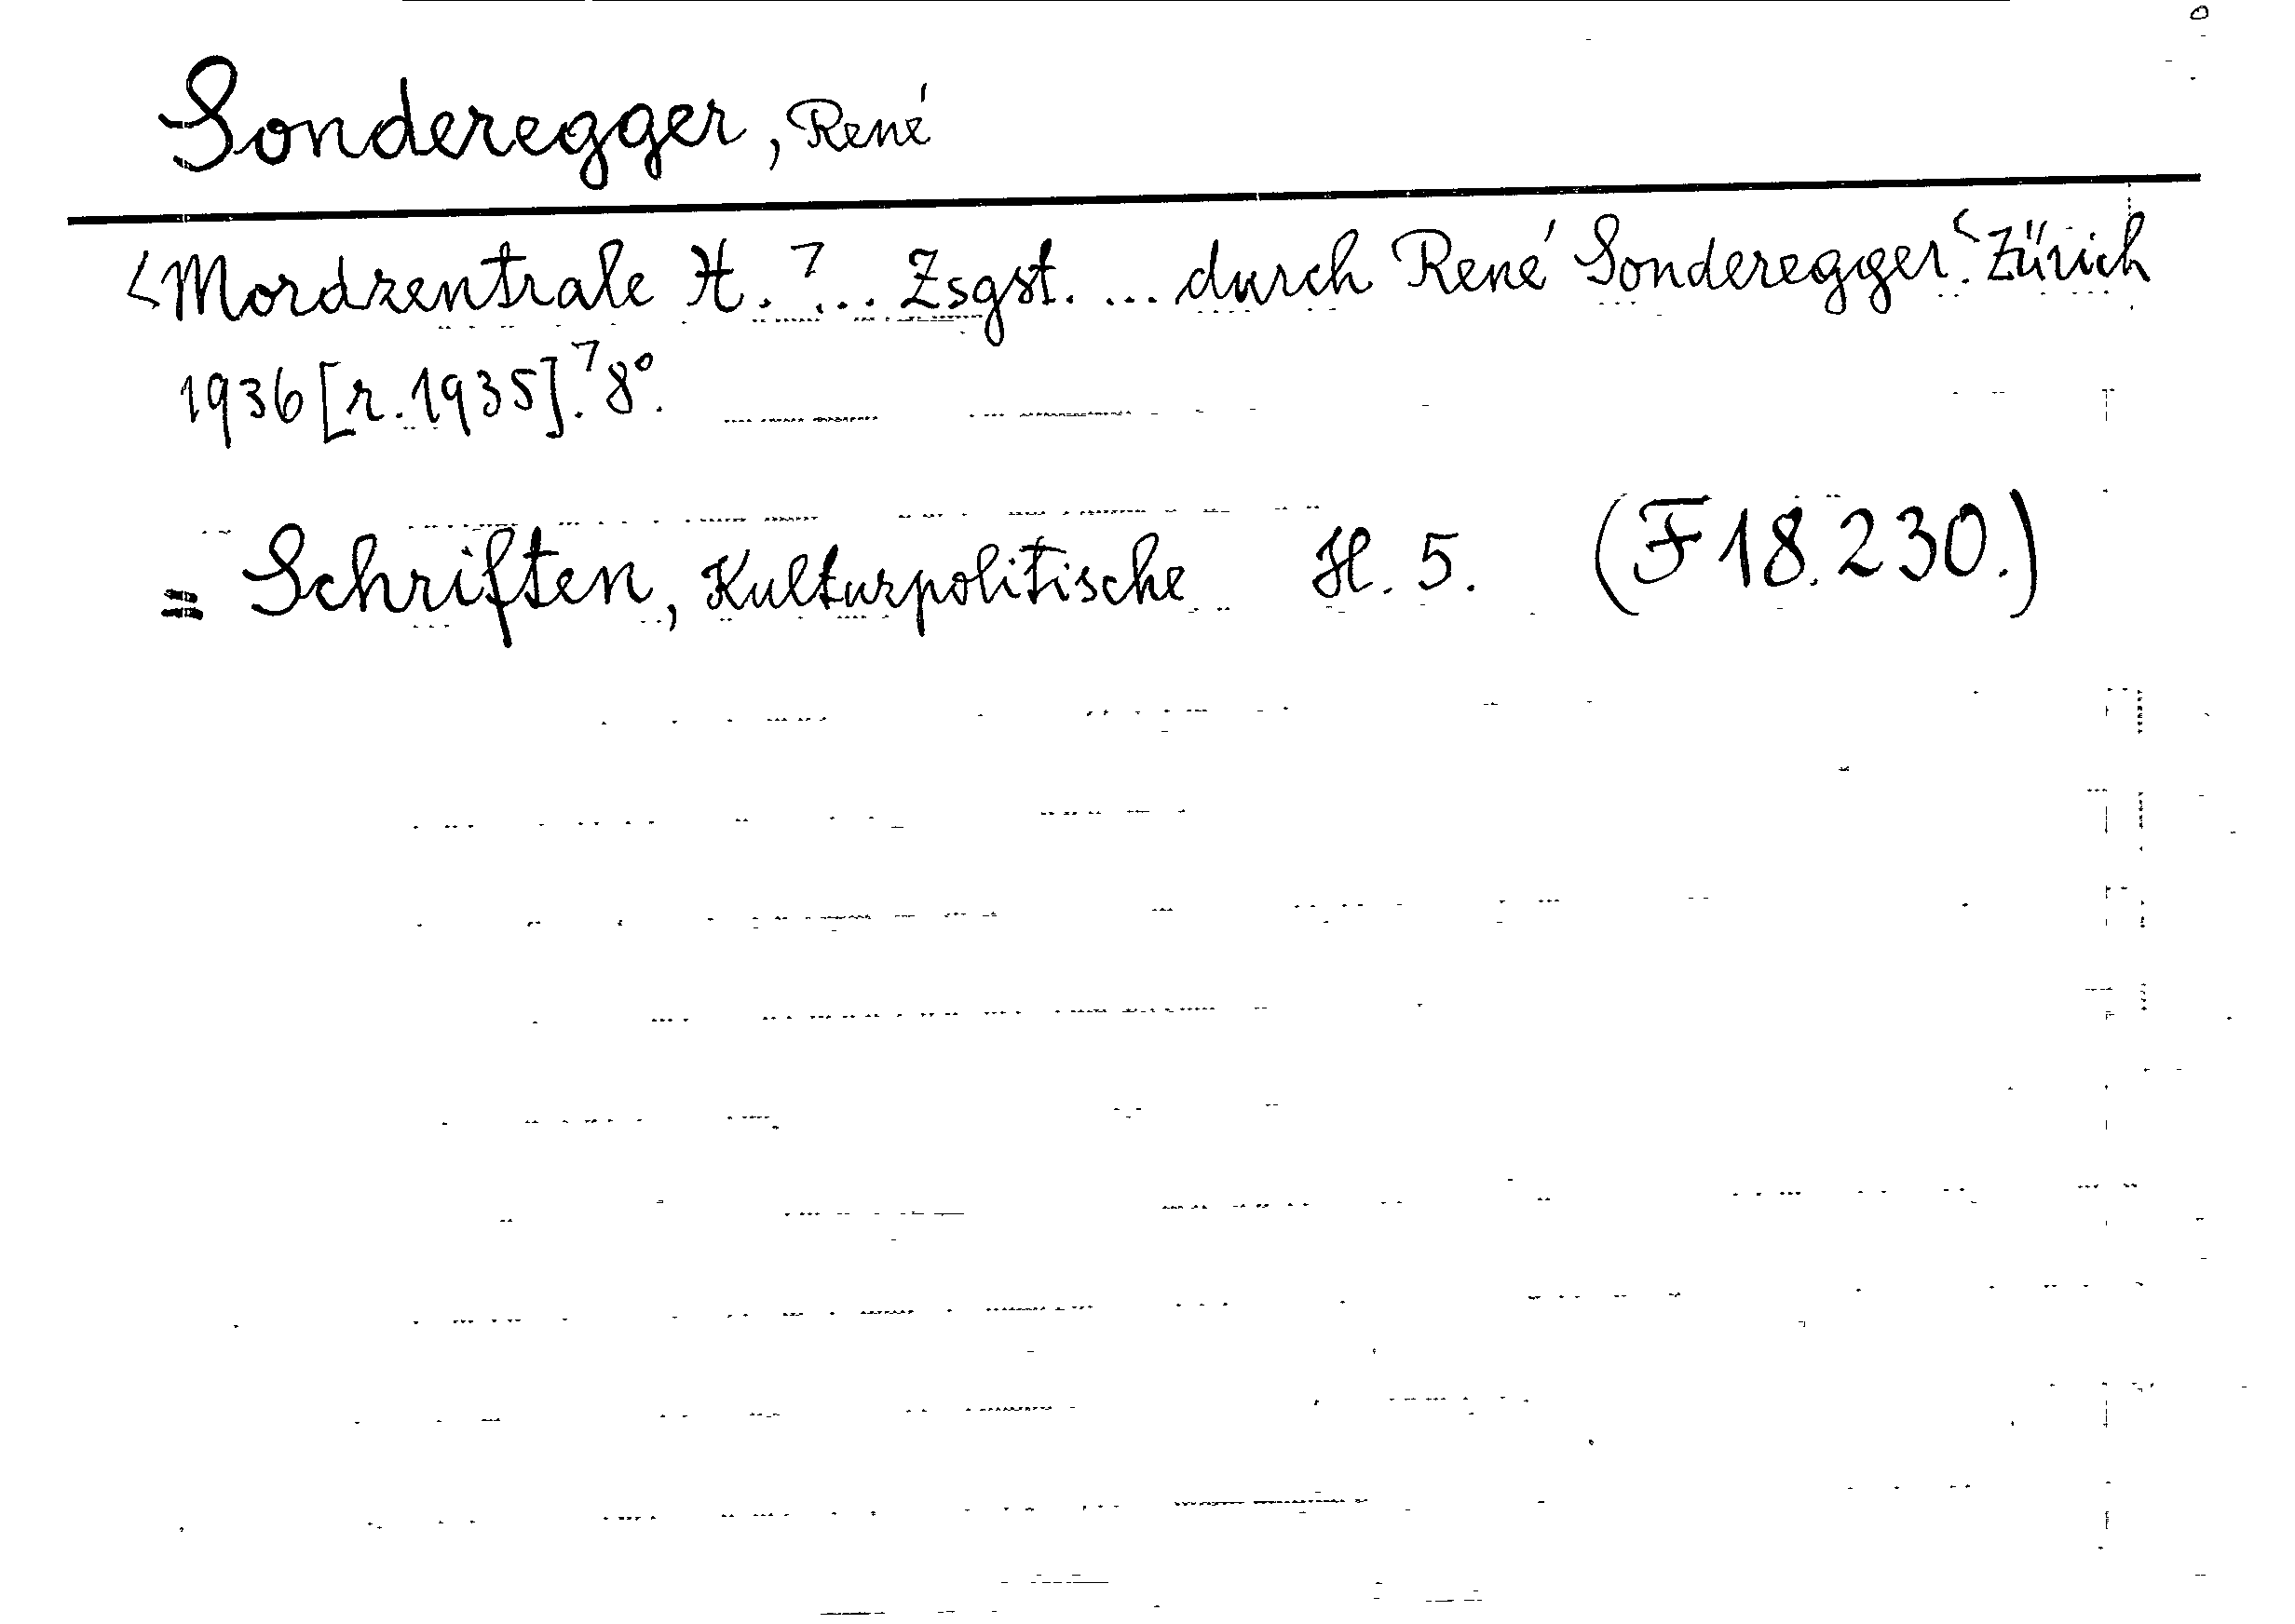 Sonderegger, René
<Mordzentrale H.⁊... Zsgst. ... durch René Sonderegger.< Zürich
1936 [r. 1935].⁊ 8°.
= Schriften, Kulturpolitische H. 5. (F 18.230.)